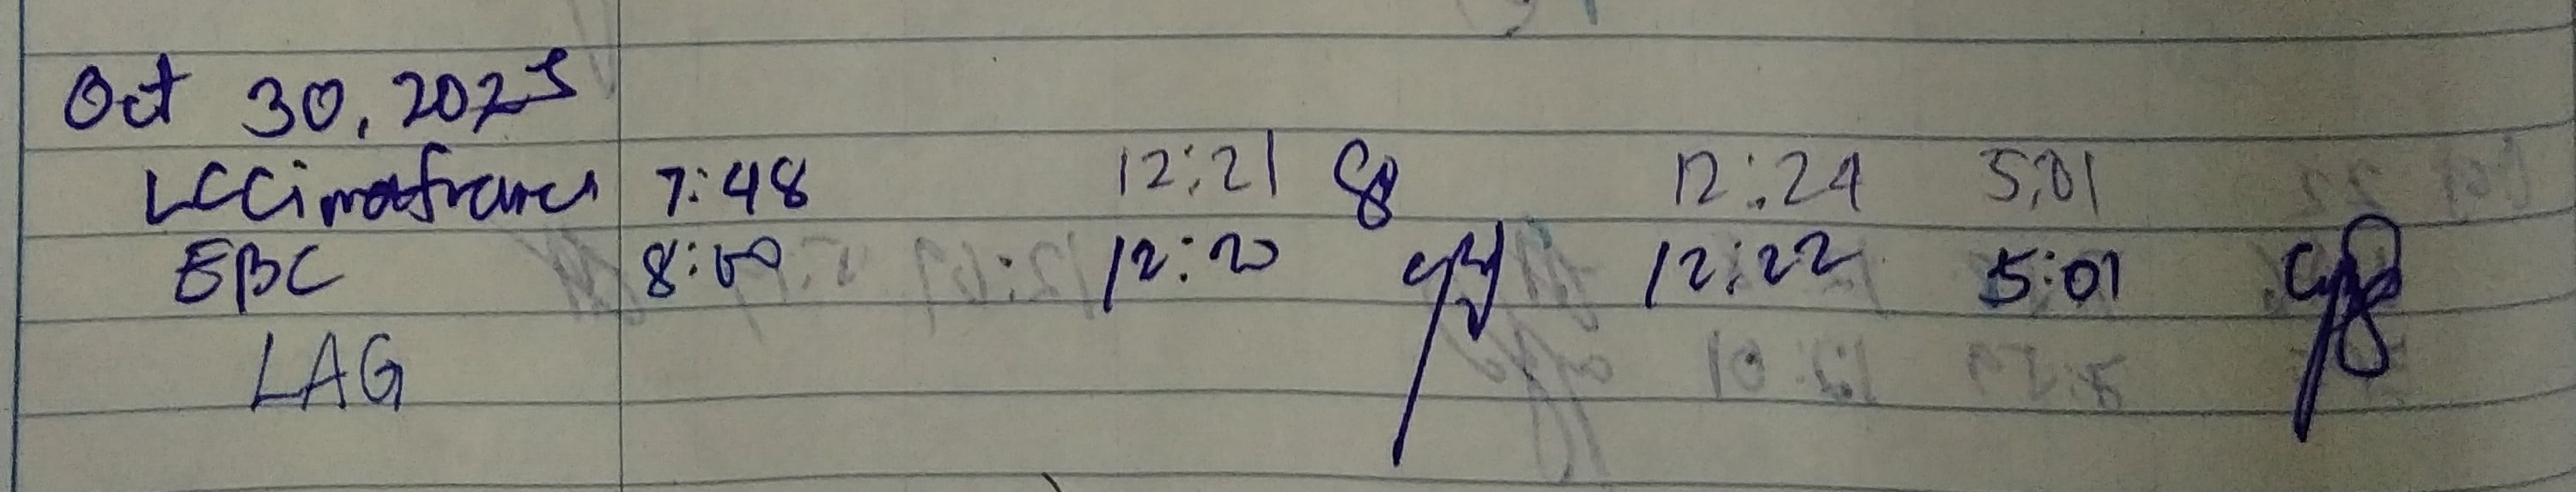 Oct 30, 2025
LCCimafranca 7:48 12:21 12:24 5:01
EBC 8:00 12:20 12:22 5:01
LAG